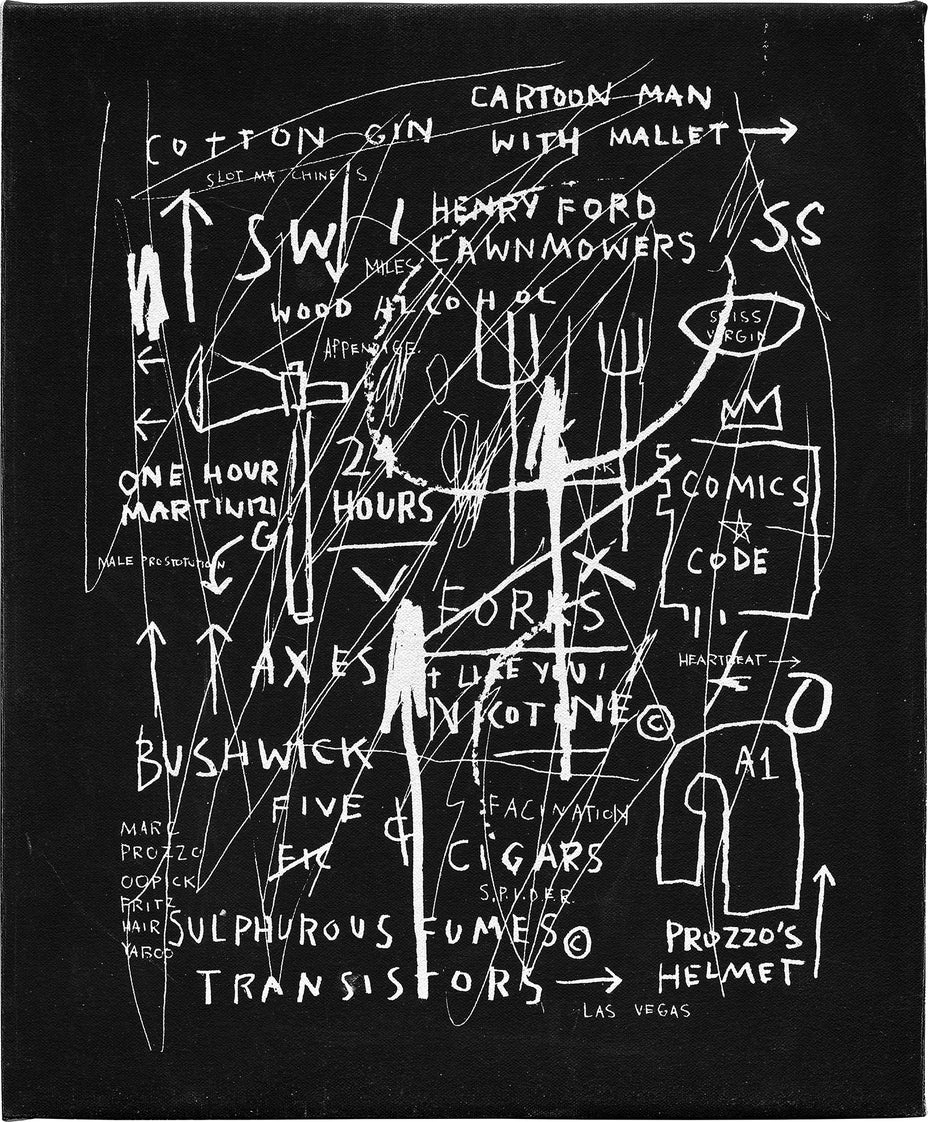 CARTOON MAN
WITH MALLET →
COTTON GIN
SLOT MA CHINE S
SW I SS
HENRY FORD
LAWNMOWERS
MILES
WOOD ALCOHOL
SWISS
VIRGIN
APPENDIGE.
ONE HOUR
MARTINIZI
G
2
HOURS
COMICS
CODE
MALE PROSTOTUTION
X
V
FORKS
AXES
I LIKE YOU!
HEARTBEAT →
NICOTINE ©
BUSHWICK
A1
FIVE &
FACINATION
MARC
PROZZO
EIC
CIGARS
OOPICK
S.P.I.D.E.R.
FRITZ
HAIR
YABOO
SULPHUROUS FUMES ©
PROZZO'S
HELMET
TRANSISTORS →
LAS VEGAS